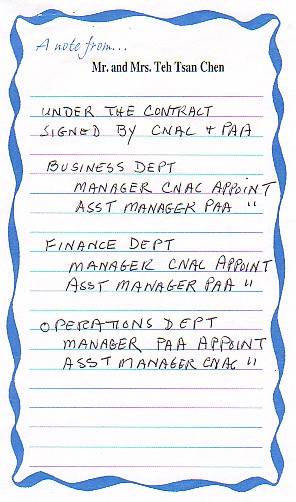 A note from...
Mr. and Mrs. Teh Tsan Chen
UNDER THE CONTRACT
SIGNED BY CNAC + PAA
BUSINESS DEPT
MANAGER CNAC APPOINT
ASST MANAGER PAA "
FINANCE DEPT
MANAGER CNAC APPOINT
ASST MANAGER PAA "
OPERATIONS DEPT
MANAGER PAA APPOINT
ASST MANAGER CNAC "